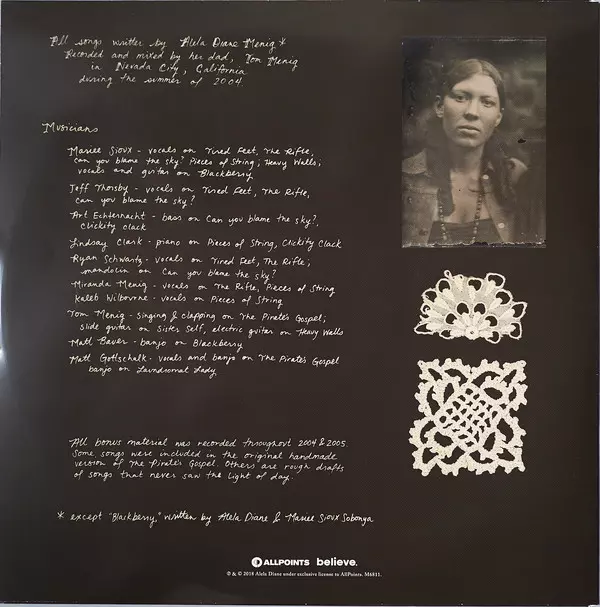 All songs written by Alela Diane Menig *
Recorded and mixed by her dad, Tom Menig
in Nevada City, California
during the summer of 2004.
Musicians
Mariee Sioux - vocals on Tired Feet, The Rifle,
can you blame the sky? Pieces of String; Heavy Walls;
vocals and guitar on Blackberry
Jeff Thorsby - vocals on Tired Feet, The Rifle,
can you blame the sky?
Art Echternacht - bass on Can you blame the sky?,
Clickity clack
Lindsay Clark - piano on Pieces of String, Clickity Clack
Ryan Schwartz - vocals on Tired Feet, The Rifle;
mandolin on Can you blame the sky?
Miranda Menig - vocals on The Rifle, Pieces of String
Kaleb Wilbourne - vocals on Pieces of String
Tom Menig - Singing & clapping on The Pirate's Gospel;
slide guitar on Sister Self, electric guitar on Heavy Walls
Matt Bauer - banjo on Blackberry
Matt Gottschalk - vocals and banjo on The Pirate's Gospel
banjo on Laundromat Lady.
All bonus material was recorded throughout 2004 & 2005.
Some songs were included in the original handmade
version of The Pirate's Gospel. Others are rough drafts
of songs that never saw the light of day.
* except "Blackberry," written by Alela Diane & Mariee Sioux Sobonya
ALLPOINTS believe.
℗ & © 2018 Alela Diane under exclusive license to AllPoints. M6811.